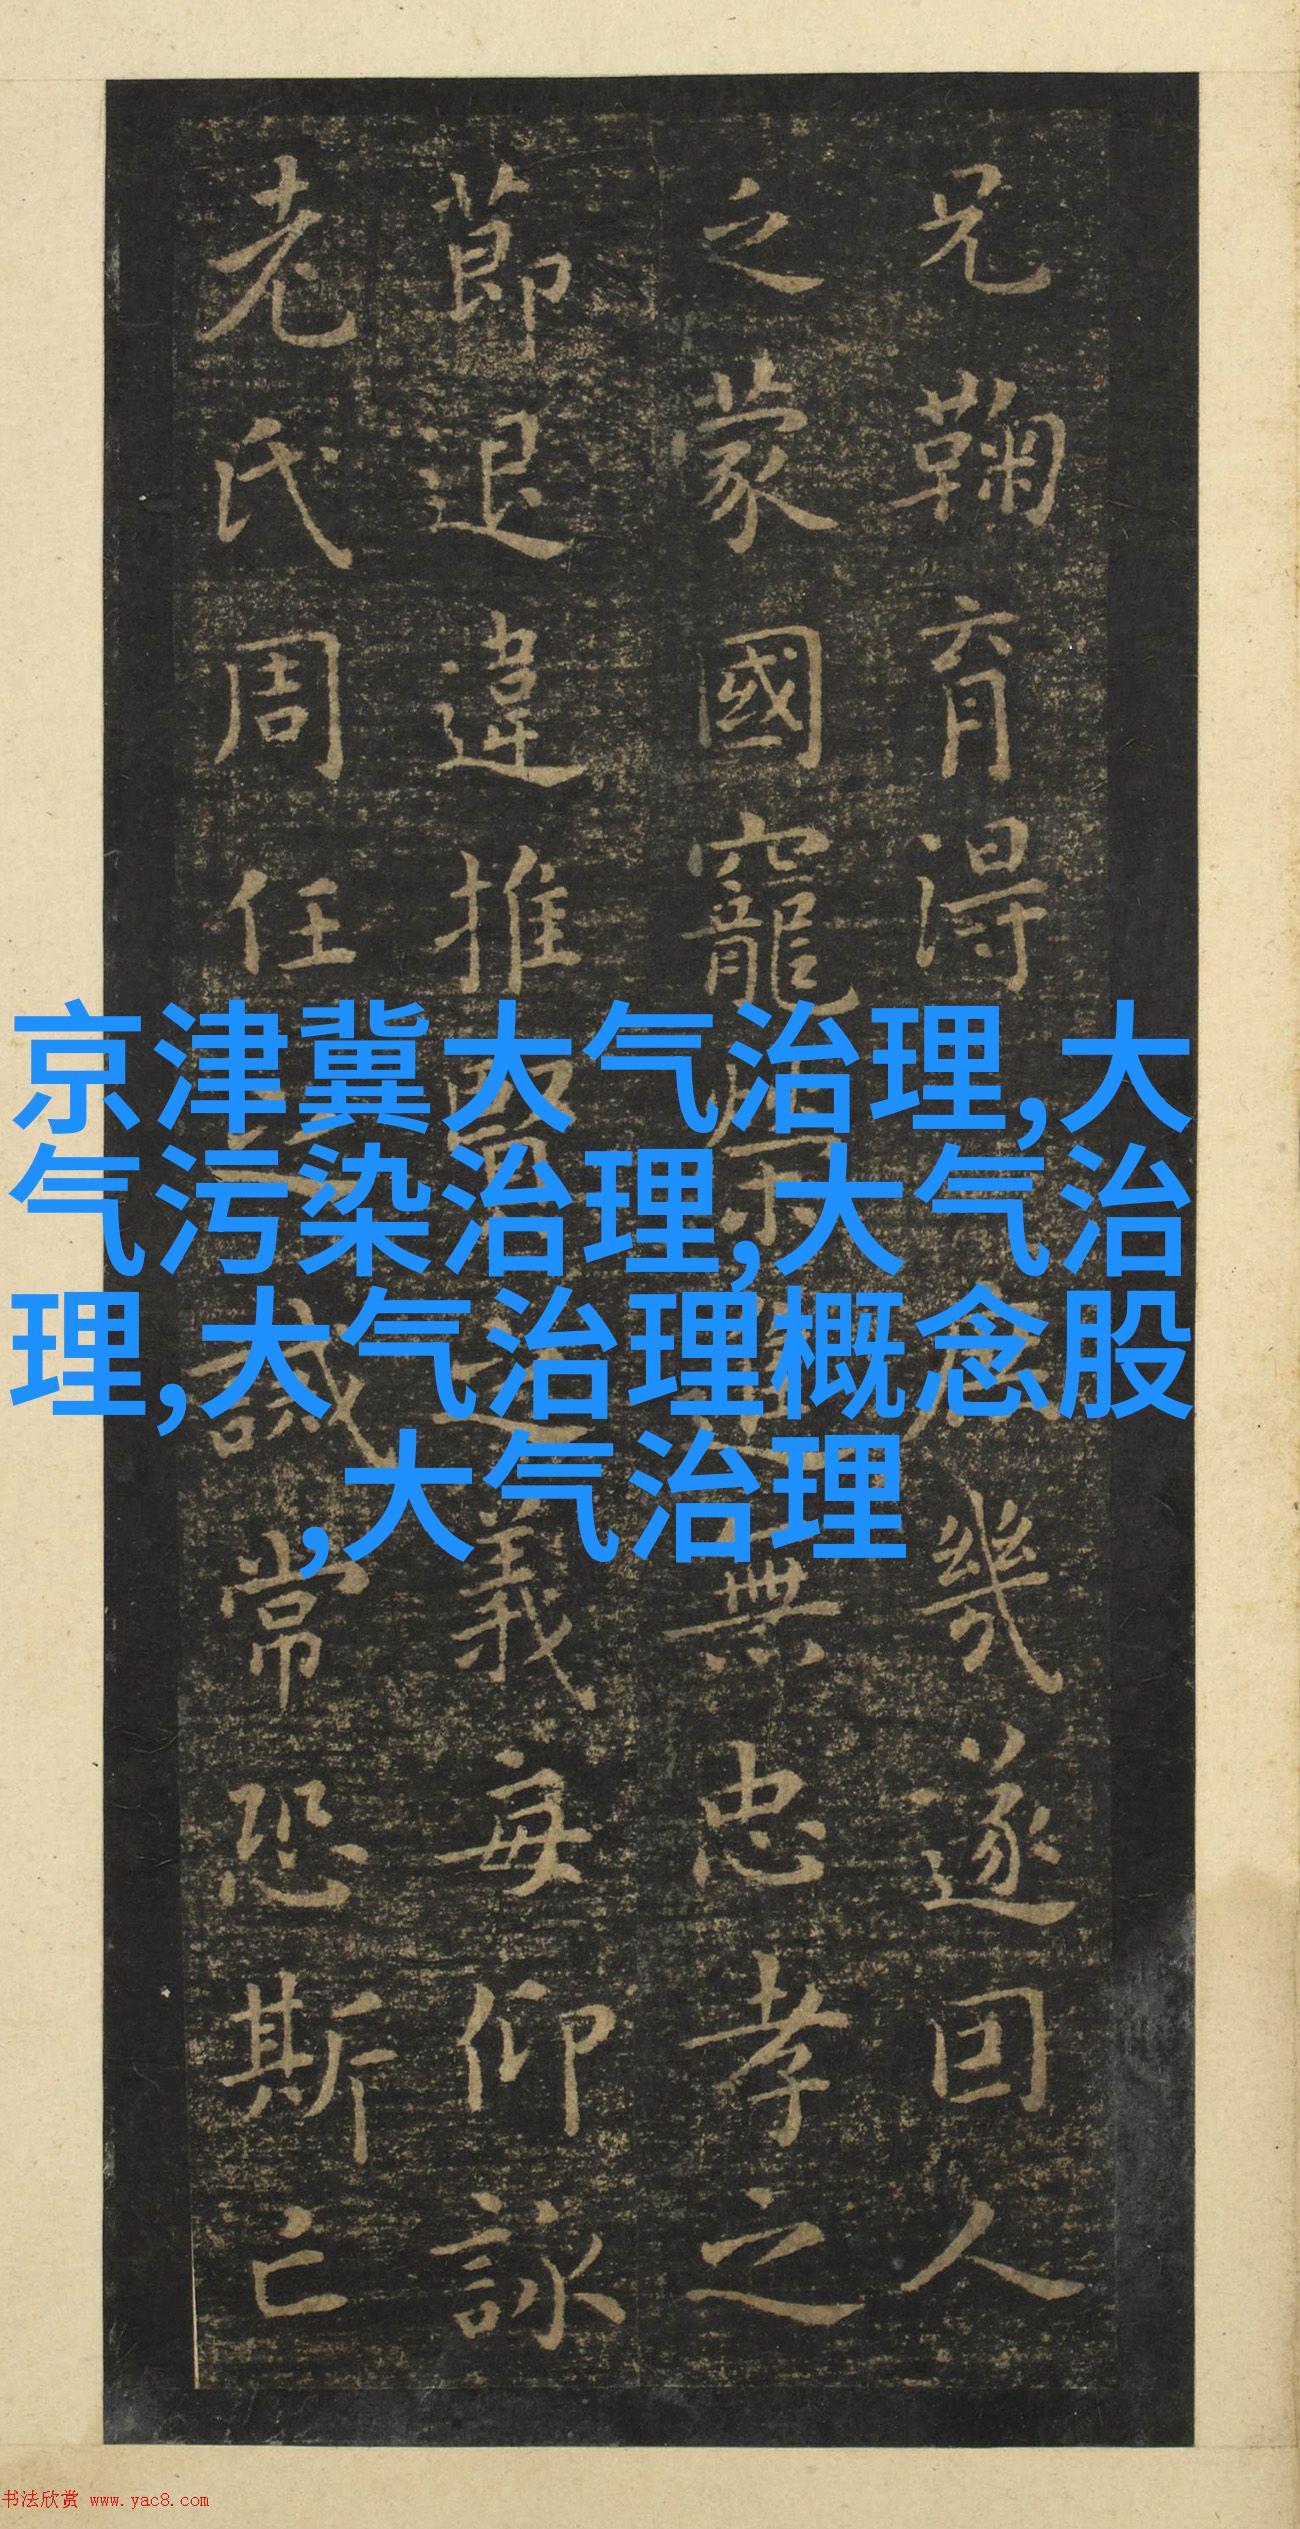 京津冀大气治理,大
气污染治理,大气治
理,大气治理概念股
,大气治理
兄鞠育得庶幾遂因人
之蒙國寵榮進無忠孝之
節退違推賢之義每仰詠
老氏周任之誡常恐斯亡
书法欣赏 www.yac8.com